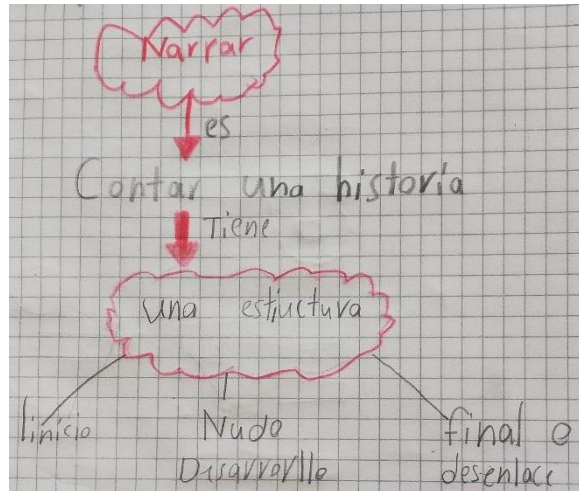 Narrar
es
Contar una historia
Tiene
una estructura
Iinicio Nudo final o
Disarrorllo desenlace